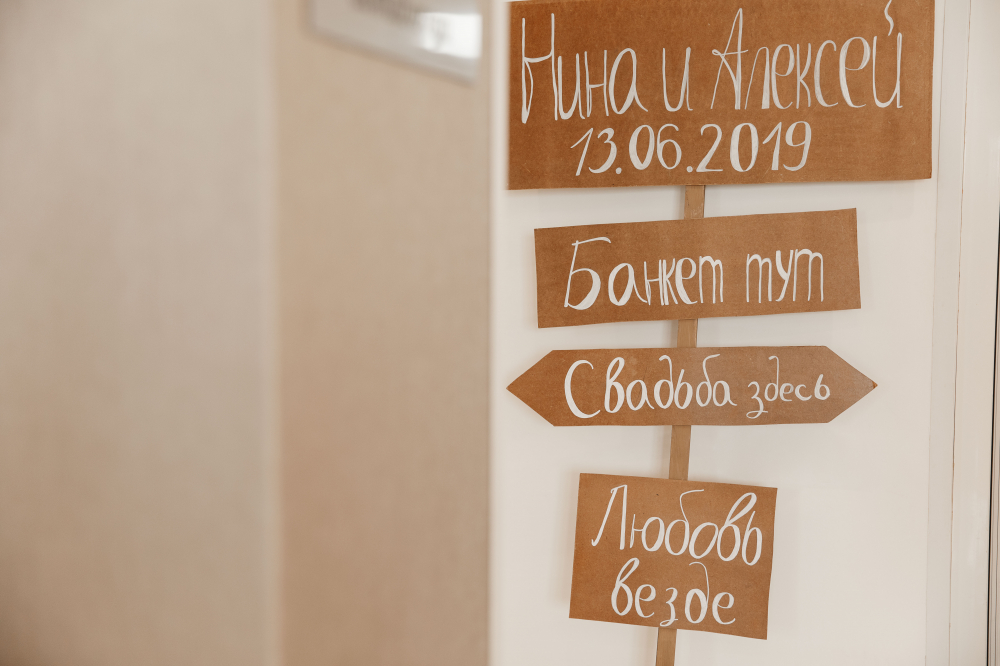 Нина и Алексей
13.06.2019
Банкет тут
Свадьба здесь
Любовь
везде